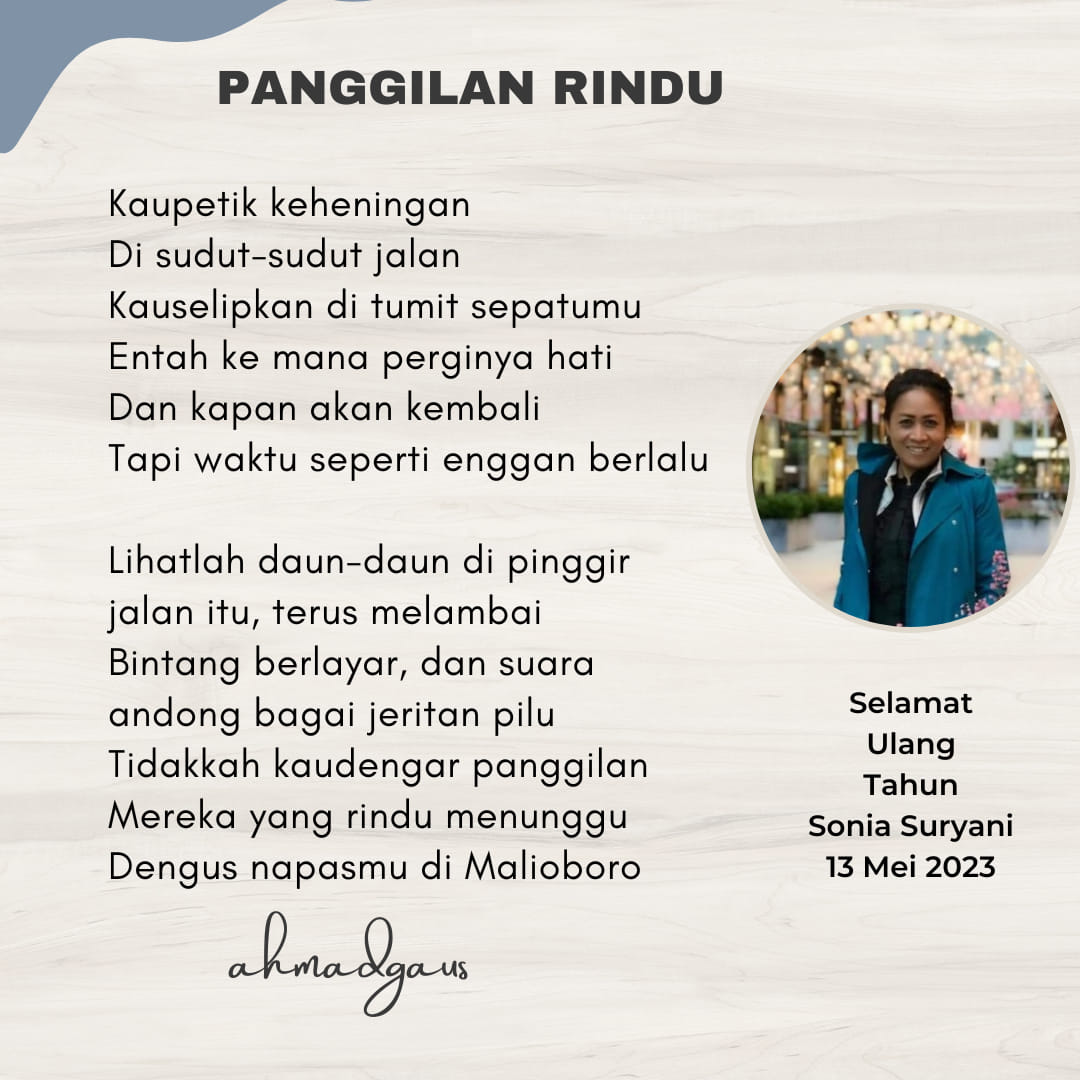 PANGGILAN RINDU
Kaupetik keheningan
Di sudut-sudut jalan
Kauselipkan di tumit sepatumu
Entah ke mana perginya hati
Dan kapan akan kembali
Tapi waktu seperti enggan berlalu
Lihatlah daun-daun di pinggir
jalan itu, terus melambai
Bintang berlayar, dan suara
andong bagai jeritan pilu
Tidakkah kaudengar panggilan
Mereka yang rindu menunggu
Dengus napasmu di Malioboro
ahmadgaus
Selamat
Ulang
Tahun
Sonia Suryani
13 Mei 2023